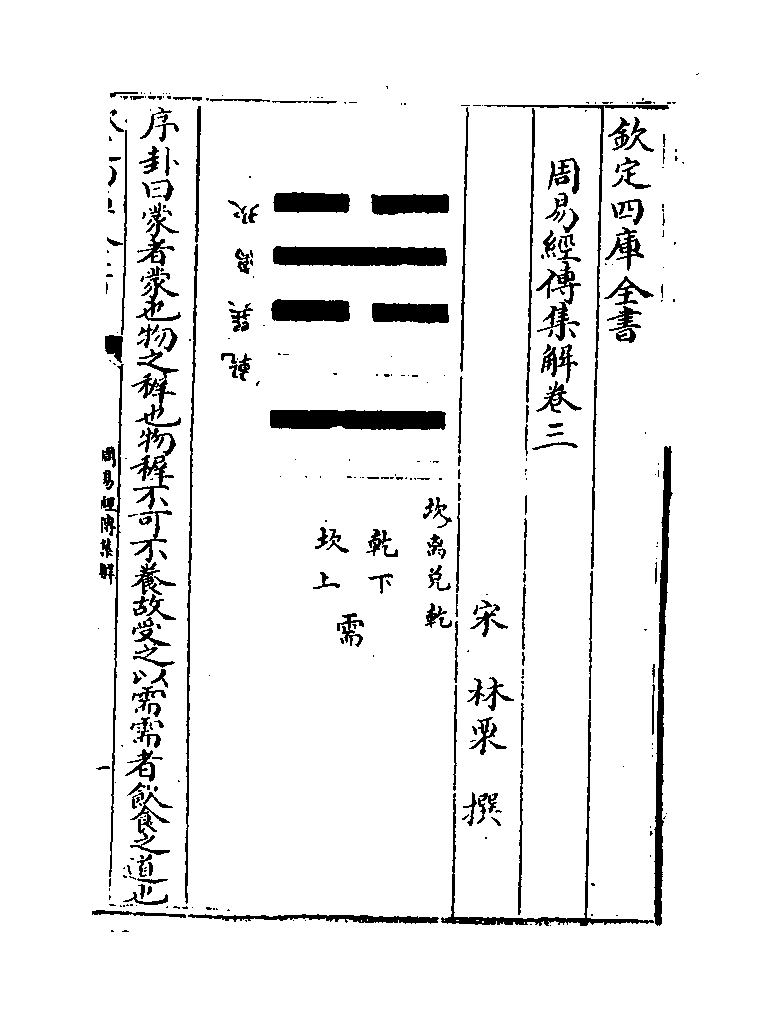 欽定四庫全書
周易經傳集解卷三
宋 林栗 撰
坎离兌乾
乾下
坎上
需
乾巽离坎
序卦曰蒙者蒙也物之穉也物穉不可不養故受之以需需者飲食之道也
周易經傳集解
一